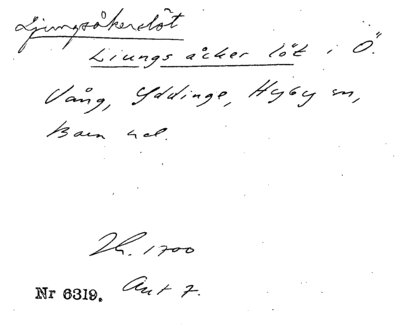 Ljungsåkerslöt
Liungs åcker löt i Ö.
Vång, Yddinge, Hyby sn,
Bara hd.
Zh. 1700
Ant 7.
Nr 6319.